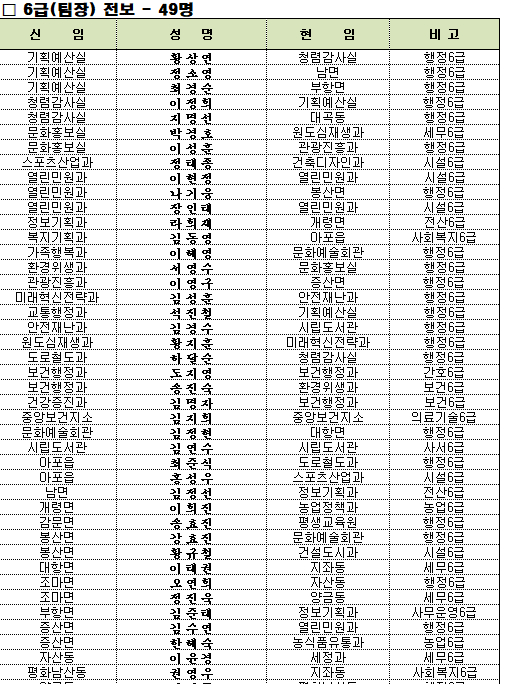 □ 6급(팀장) 전보 - 49명
신 임 성 명 현 임 비 고
기획예산실 황상연 청렴감사실 행정6급
기획예산실 정소영 남면 행정6급
기획예산실 최경순 부항면 행정6급
청렴감사실 이정희 기획예산실 행정6급
청렴감사실 지명선 대곡동 행정6급
문화홍보실 박경호 원도심재생과 세무6급
문화홍보실 이성훈 관광진흥과 행정6급
스포츠산업과 정태종 건축디자인과 시설6급
열린민원과 이현정 열린민원과 시설6급
열린민원과 나기웅 봉산면 행정6급
열린민원과 장인태 열린민원과 시설6급
정보기획과 라희재 개령면 전산6급
복지기획과 김동영 아포읍 사회복지6급
가족행복과 이혜영 문화예술회관 행정6급
환경위생과 서영수 문화홍보실 행정6급
관광진흥과 이영구 증산면 행정6급
미래혁신전략과 김성훈 안전재난과 행정6급
교통행정과 석진철 기획예산실 행정6급
안전재난과 김경수 시립도서관 행정6급
원도심재생과 황지훈 미래혁신전략과 행정6급
도로철도과 하달순 청렴감사실 행정6급
보건행정과 도지영 보건행정과 간호6급
보건행정과 송진숙 환경위생과 보건6급
건강증진과 김명자 보건행정과 보건6급
중앙보건지소 김지희 중앙보건지소 의료기술6급
문화예술회관 김정현 대항면 행정6급
시립도서관 김연수 시립도서관 사서6급
아포읍 최준식 도로철도과 행정6급
아포읍 홍성우 스포츠산업과 시설6급
남면 김정선 정보기획과 전산6급
개령면 이희진 농업정책과 농업6급
감문면 송효진 평생교육원 행정6급
봉산면 강효진 문화예술회관 행정6급
봉산면 황규철 건설도시과 시설6급
대항면 이태권 지좌동 세무6급
조마면 오연희 자산동 행정6급
조마면 정진욱 양금동 세무6급
부항면 김준태 정보기획과 사무운영6급
증산면 김수연 열린민원과 행정6급
증산면 한혜숙 농식품유통과 농업6급
자산동 이윤경 세정과 세무6급
평화남산동 권영우 지좌동 사회복지6급